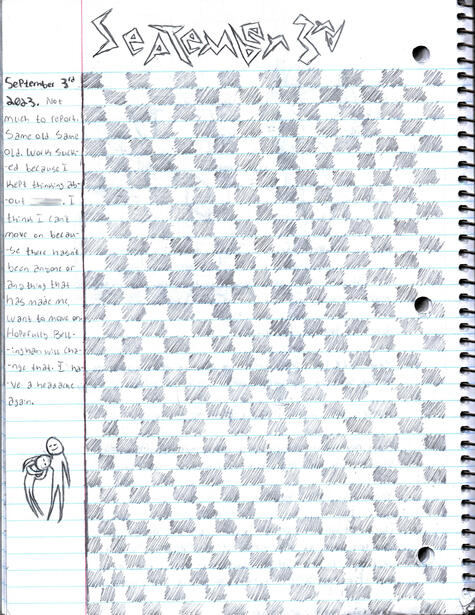 September 3rd
September 3rd
2023. Not
much to report.
Same old. Same
old. Work Suck-
-ed because I
kept thinking ab-
-out . I
think I can't
move on becau-
-se there hasn't
been anyone or
anything that
has made me
want to move on.
Hopefully Bell-
-ingham will cha-
-nge that. I ha-
-ve a headache
again.